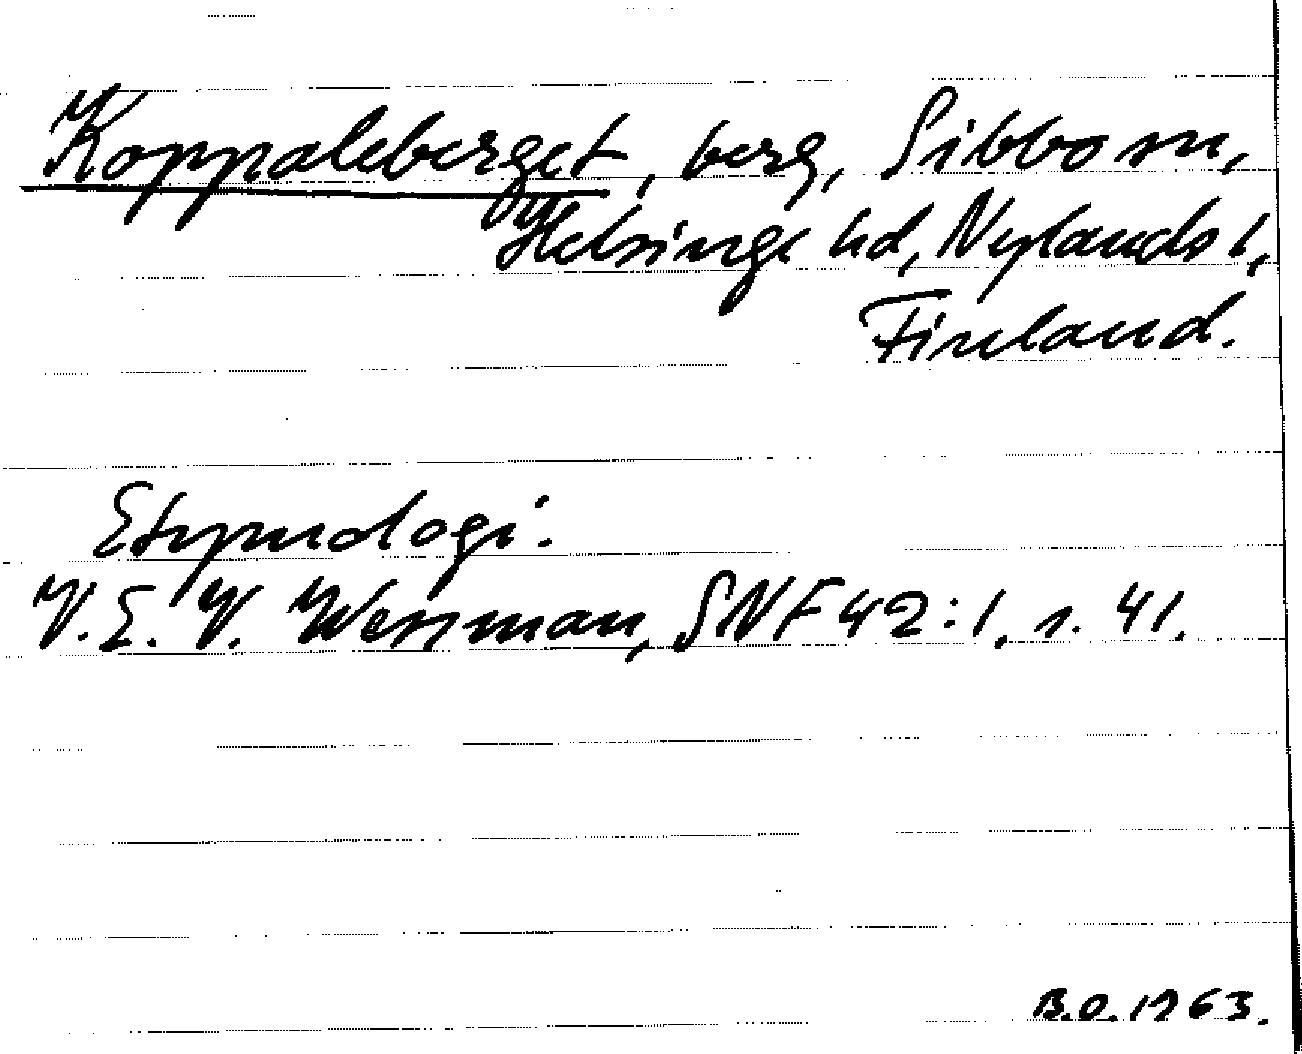 Koppaleberget, berg, Sibbo sn,
Helsinge hd, Nylands l,
Finland.
Etymologi.
V. E. V. Wessman, SNF 42:1, s. 41.
B.O. 1963.